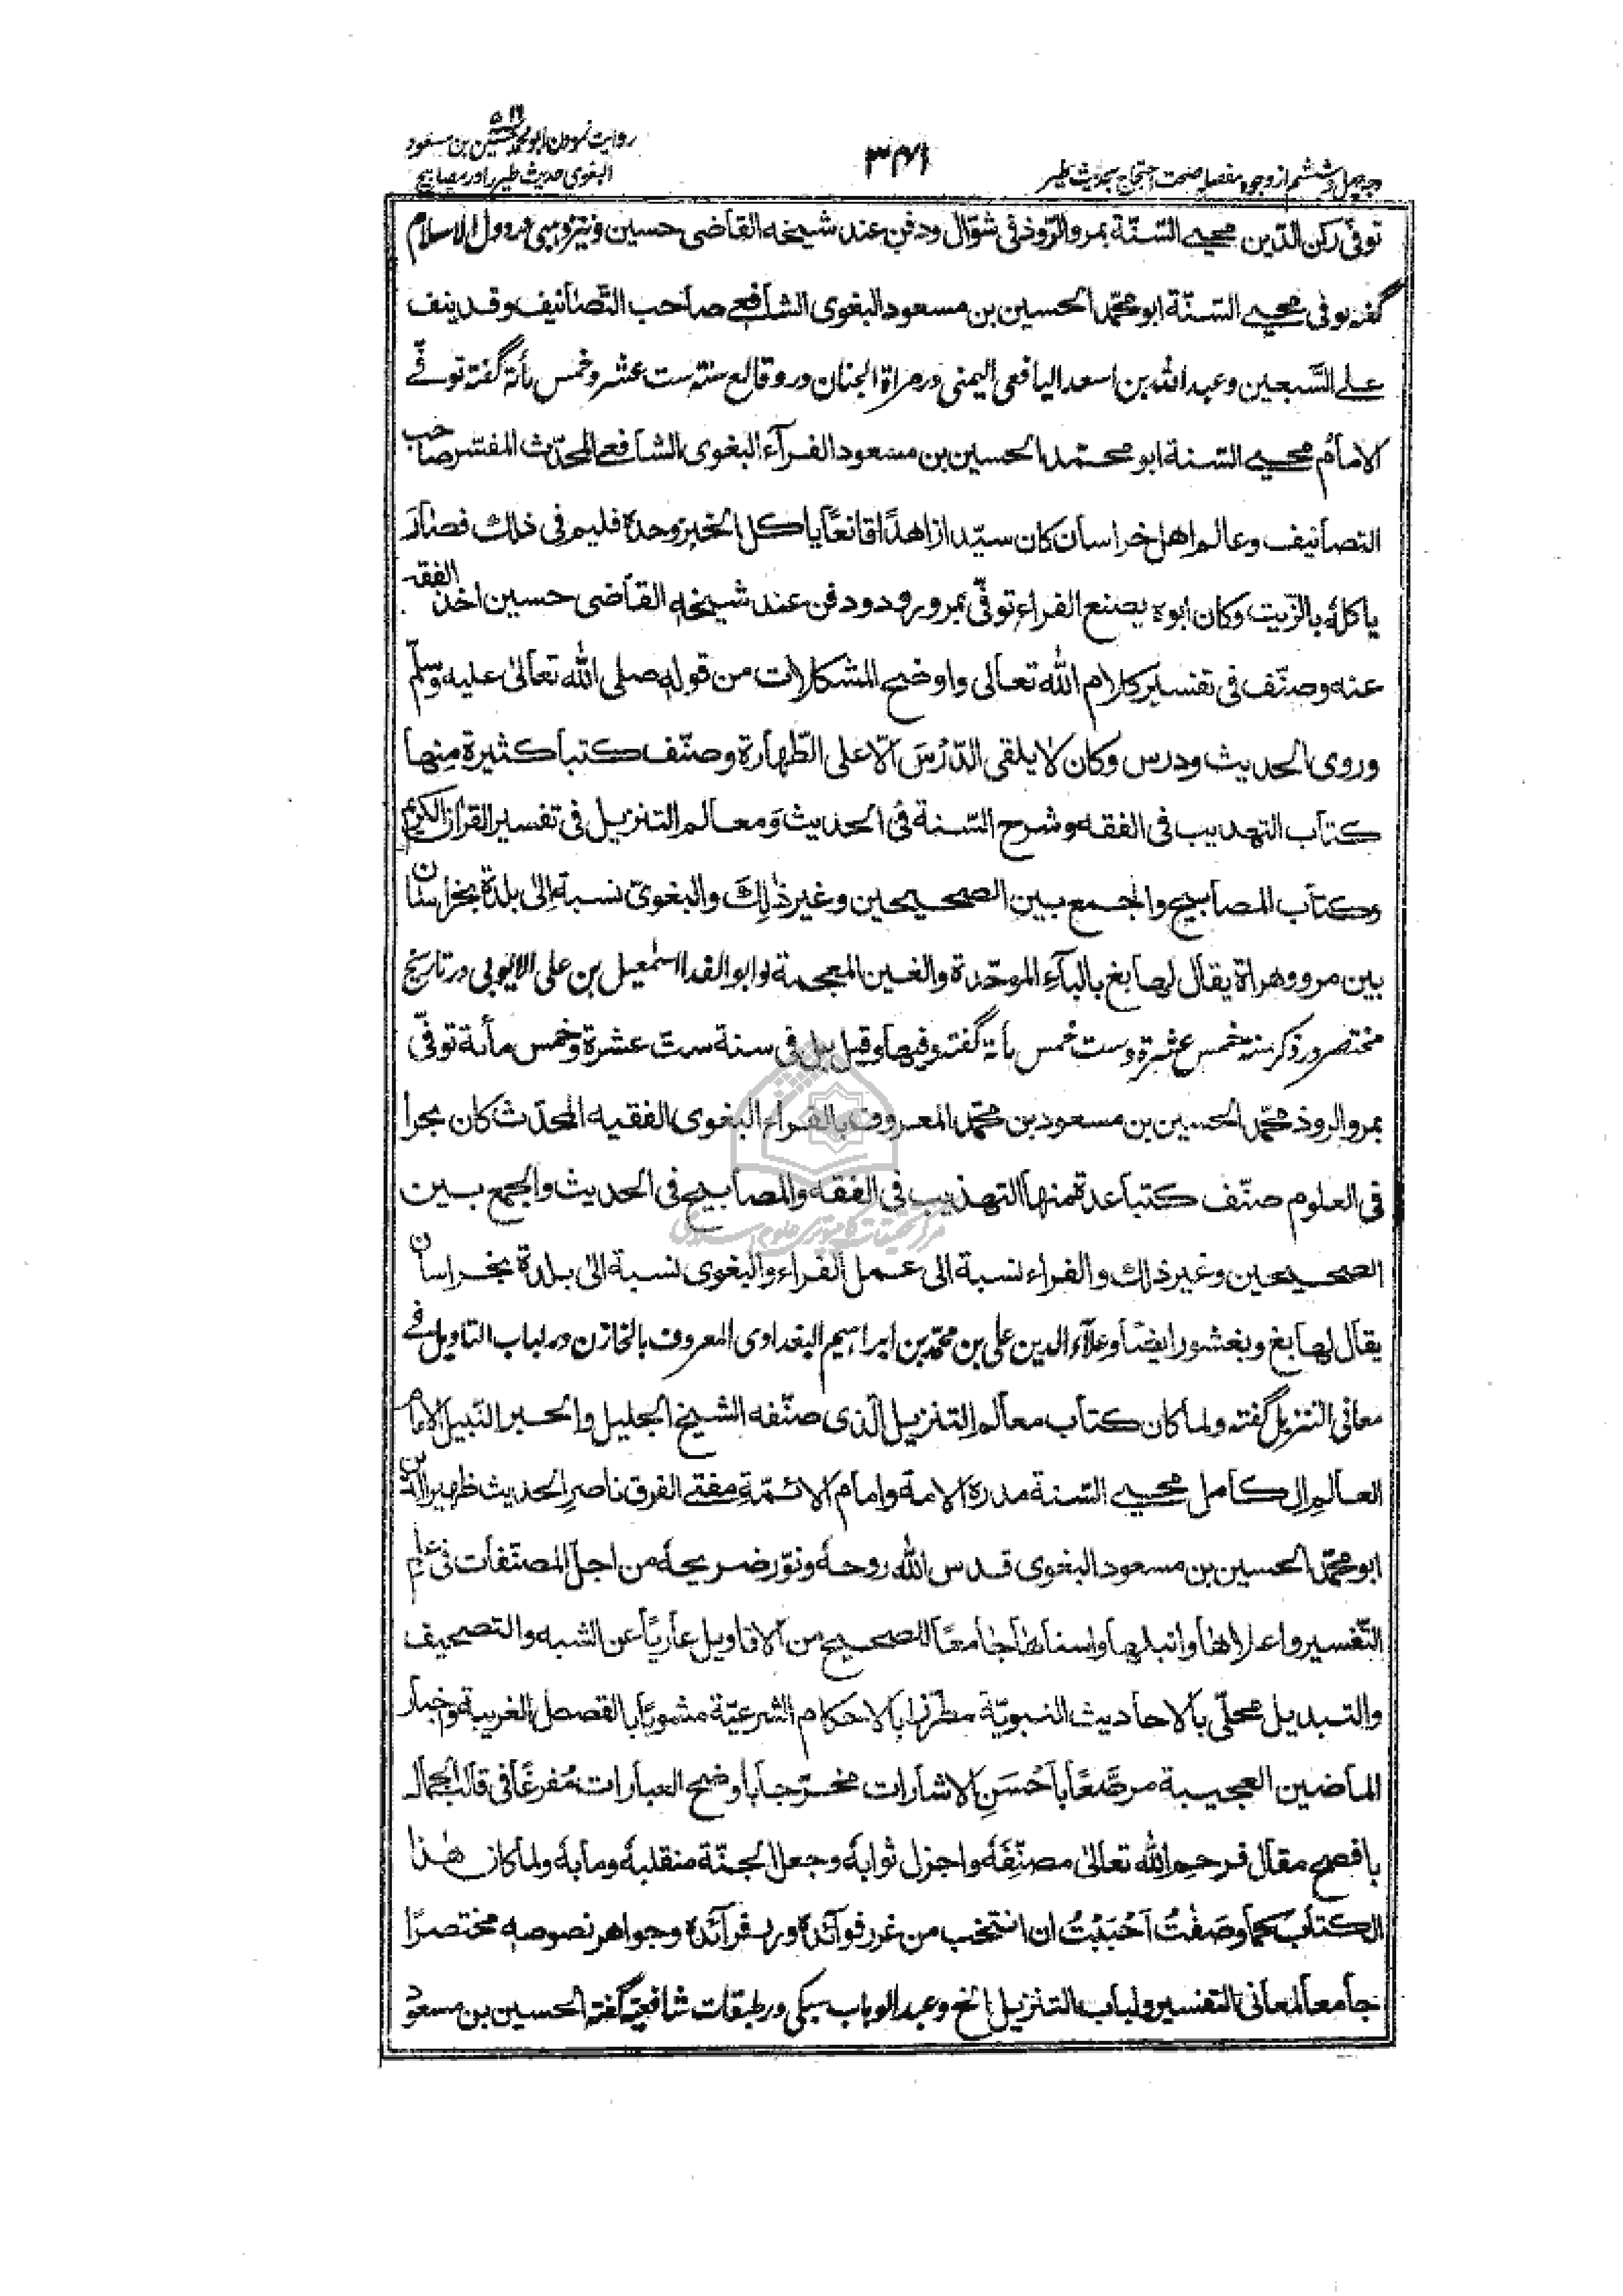 روایت نمودن ابو محمد حسین بن مسعود
البغوی حدیث طیر را در مصابیح
۳۴۱
وجه چهل و ششم از وجوه مفصله صحت احتجاج بحدیث طیر
توفّی رکن الدّین محیی السّنّة بمرو الرّوذ فی شوّال ودفن عند شیخه القاضی حسین ونیز ذهبی در دول الاسلام
گفته توفی محیی السّنّة ابو محمّد الحسین بن مسعود البغوی الشافعی صاحب التّصانیف وقد نیف
علی السّبعین وعبد الله بن اسعد الیافعی الیمنی در مراة الجنان در وقائع سنة ست عشر وخمس مأة گفته توفّی
الامام محیی السّنة ابو محمّد الحسین بن مسعود الفرّاء البغوی الشافعی المحدّث المفسّر صاحب
التصانیف وعالم اهل خراسان کان سیّدا زاهدًا قانعًا یاکل الخبز وحده فلیم فی ذلک فصار
یاکله بالزّیت وکان ابوه یصنع الفراء توفّی بمرورود ودفن عند شیخه القاضی حسین اخذ الفقه
عنه وصنّف فی تفسیر کلام الله تعالی واوضح المشکلات من قوله صلی الله تعالی علیه وسلّم
وروی الحدیث ودرس وکان لا یلقی الدّرس الّا علی الطّهارة وصنّف کتبا کثیرة منها
کتاب التهدیب فی الفقه وشرح السّنة فی الحدیث ومعالم التنزیل فی تفسیر القران الکریم
وکتاب المصابیح والجمع بین الصحیحین وغیر ذلک والبغویّ نسبة الی بلدة بخراسان
بین مرو وهراة یقال لها بغ بالبآء الموحّدة والغین المعجمة وابو الفدا اسمعیل بن علی الایوبی در تاریخ
مختصر در ذکر سنة خمس عشرة وست خمس مأة گفته وفیها وقیل بل فی سنة ستّ عشرة وخمس مأة توفّی
بمرو الروذ محمّد الحسین بن مسعود بن محمّد المعروف بالفراء البغوی الفقیه المحدّث کان بحرا
فی العلوم صنّف کتبا عدة منها التهذیب فی الفقه والمصابیح فی الحدیث والجمع بین
الصحیحین وغیر ذلک والفراء نسبة الی عمل الفراء والبغوی نسبة الی بلدة بخراسان
یقال لها بغ وبغشور ایضًا وعلاء الدین علی بن محمّد بن ابراهیم البغداوی المعروف بالخازن در لباب التاویل فی
معانی التنزیل گفته ولما کان کتاب معالم التنزیل الّذی صنّفه الشیخ الجلیل والحبر النّبیل الامام
العالم الکامل محیی السّنة مدرة الامة وامام الائمّة مفتی الفرق ناصر الحدیث ظهیر الدّین
ابو محمّد الحسین بن مسعود البغوی قدس الله روحه ونوّر ضریحه من اجلّ المصنّفات فی علم
التّفسیر واعلاها وانبلها واسناها جامعًا للصحیح من الاقاویل عاریًا عن الشبه والتصحیف
والتبدیل محلّی بالاحادیث النبویّة مطرّزا بالاحکام الشرعیّة مشوبا بالقصص الغریبة واخبار
الماضین العجیبة مرصّعًا باحسن الاشارات مخرّجا باوضح العبارات مفرغًا فی قالب الجمال
بافصح مقال فرحم الله تعالی مصنّفه واجزل ثوابه وجعل الجنّة منقلبه ومآبه ولما کان هذا
الکتاب کما وصفتُ احببتُ ان انتخب من غرر فوائده ودرر فرائده وجواهر نصوصه مختصرًا
جامعًا لمعانی التفسیر ولباب التنزیل الخ وعبد الوهاب سبکی در طبقات شافعیه گفته الحسین بن مسعود
مرکز تحقیقات کامپیوتری علوم اسلامی